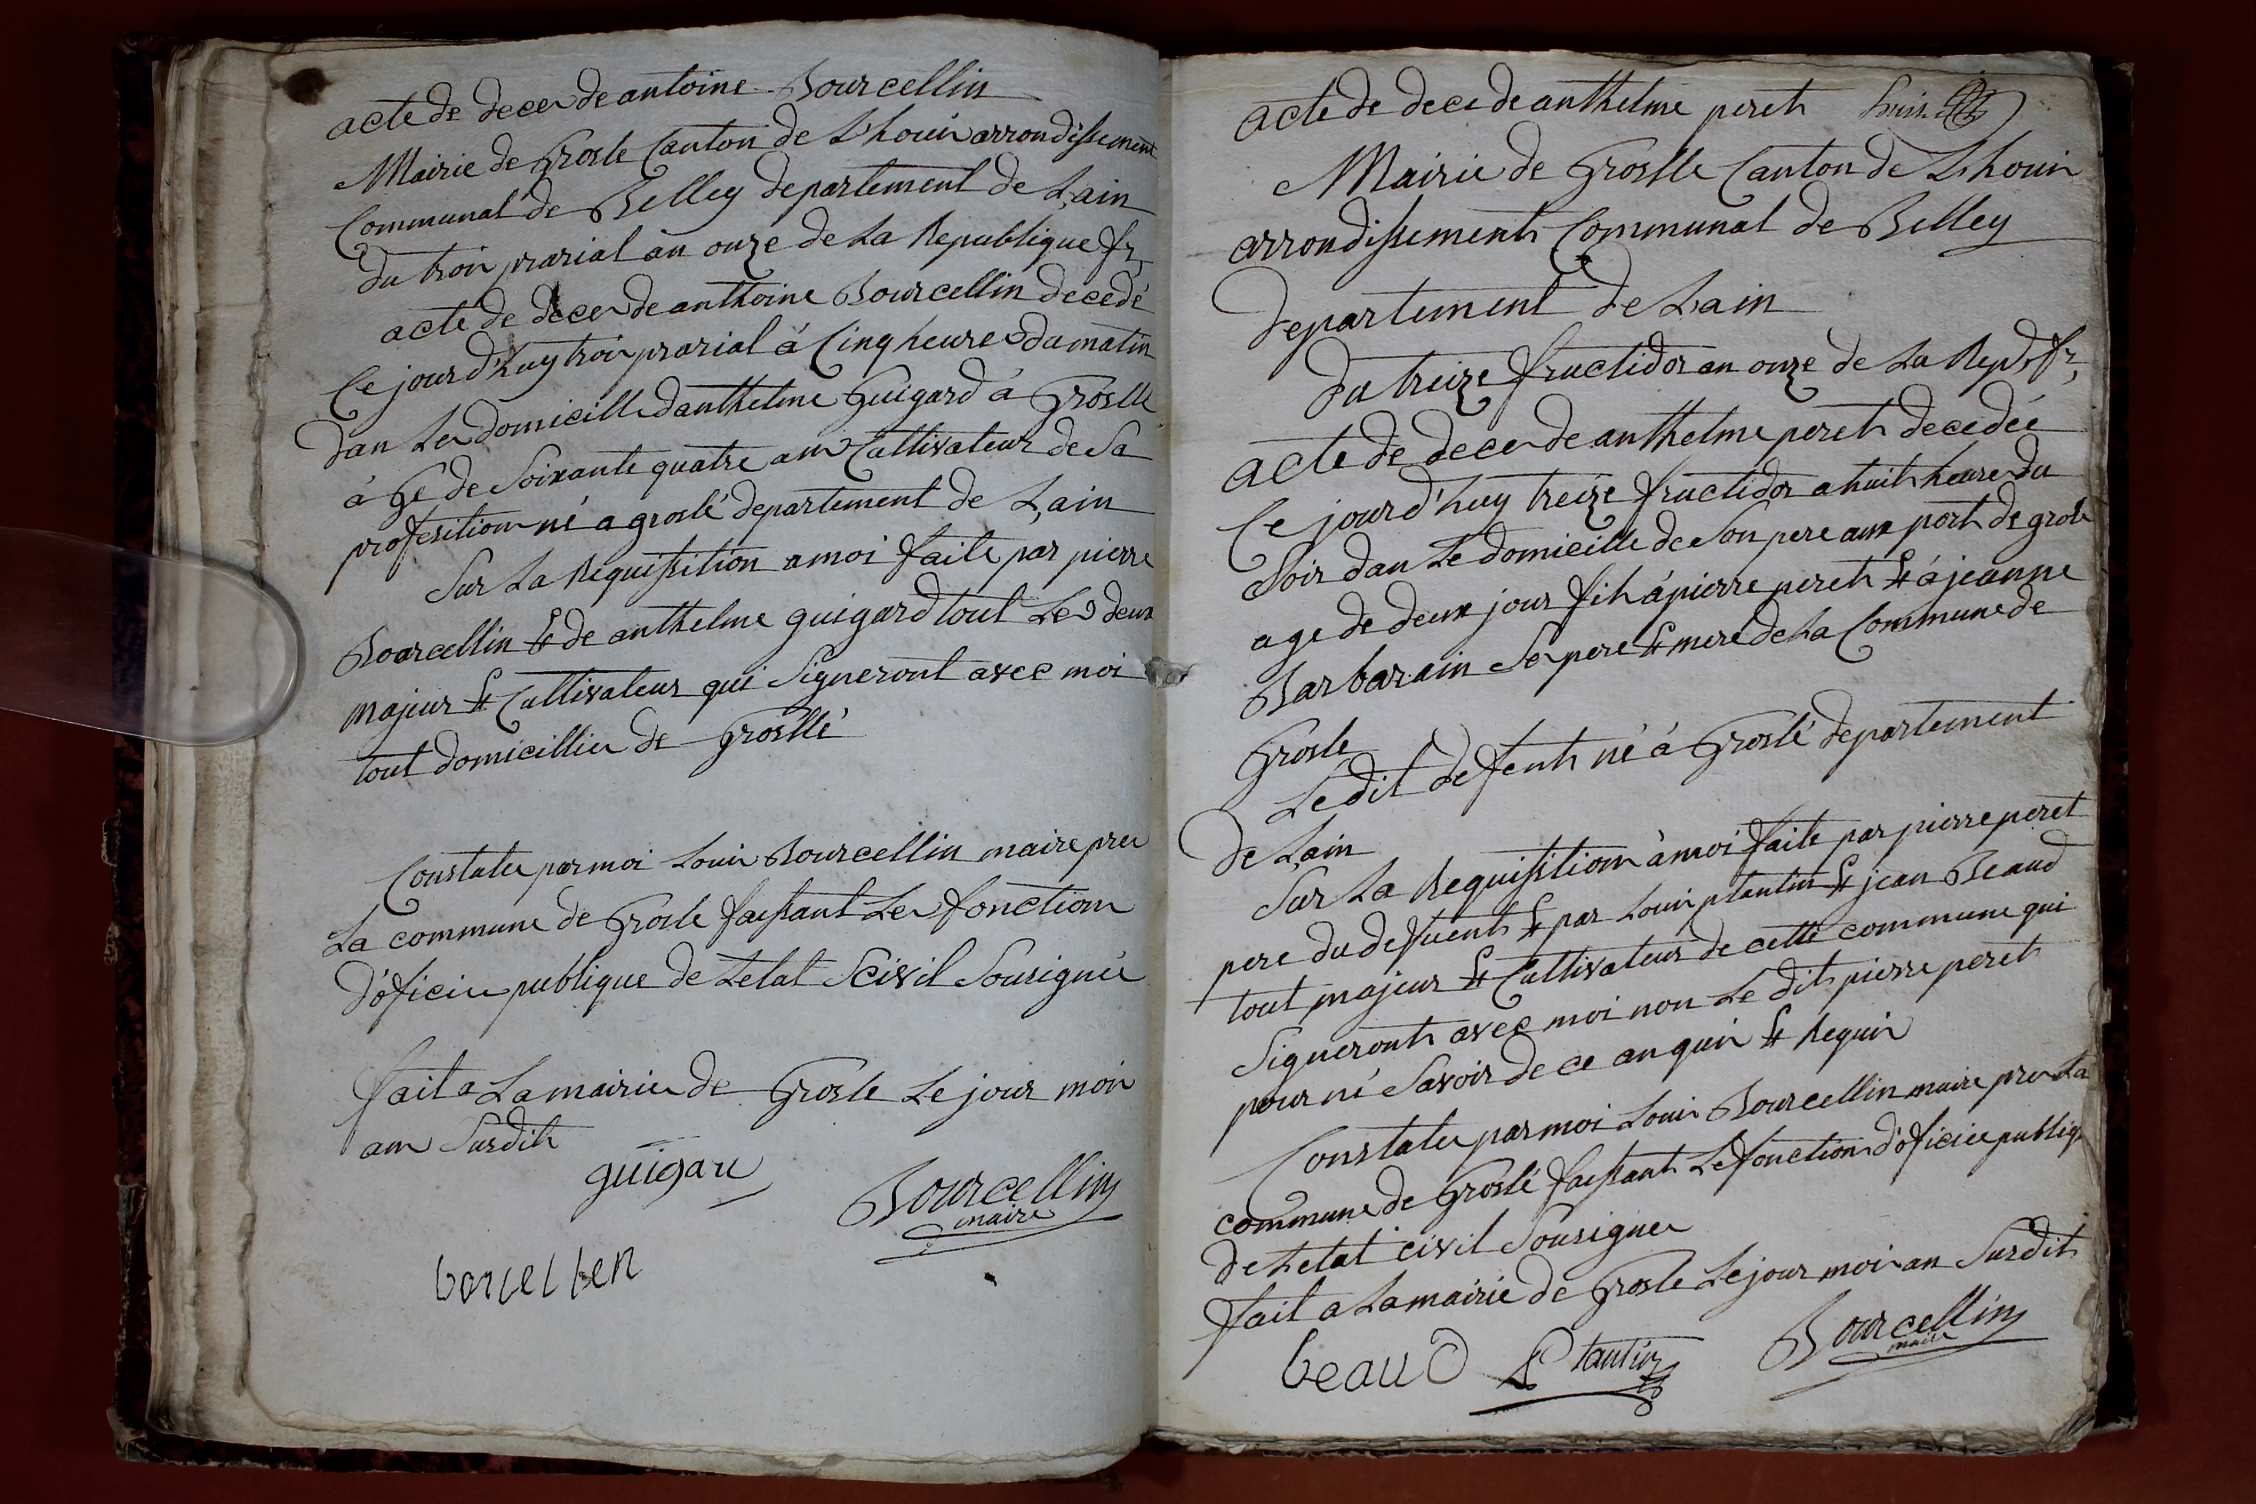 acte de decer de antoine Bourcellin
Mairie de Grosle Canton de Lhouis arrondissement
Communal de Belley departement de L'ain
du trois prarial an onze de La Republique fr,
acte de decer de anthoine Bourcellin decedé
Ce jourd'huy trois prarial á Cinq heures du matin
dan Les domicille danthelme Guigard á Groslle
á Gé de Soixante quatre ans Cultivateur de Sa
profesition né a groslé departement de L'ain
Sur La Requisition a moi faite par pierre
Bourcellin & de anthelme guigard tout Les deux
majeur & Cultivateur qui Signeront avec moi
tout domicillier de Grosllé
Constater par moi Louis Bourcellin maire pres
La commune de Grosle faissant Les fonctions
d'óficier publique de Letat Scivil Sousignée
fait a La mairie de Grosle Le jour mois
ans Surdit
guigard
Bourcellin
maire
borcellen
acte de dece de anthelme peret
Mairie de Groslle Canton de Lhouis
arrondissement Communal de Belley
departement de Lain
du treize fructidor an onze de La Rep. fr,
acte de decer de anthelme peret decedée
Ce jourd'huy treize fructidor a huit heure du
Soir dan Le domicille de Son pere aux port de grosle
age de deux jour fih á pierre peret & á jeanne
Barbarain Ses pere & mere de La Commune de
Grosle
Le dit defent né á Groslé departement
de L'ain
Sur La Requisition á moi faite par pierre peret
pere du defuent & par Louis plantin & jean Beaud
tout majeur & Cultivateur de cette commune qui
Signeront avec moi non Le dit pierre peret
pour né Savoir de ce anquis & Requis
Constater par moi Louis Bourcellin maire pres La
commune de Groslé faissant Les fonction d'óficier publiq
de Letat civil Sousigner
fait a La mairie de Grosle Le jour mois an Surdit
beaud
Plantin
Bourcellin
maire